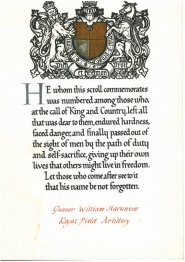 HE whom this scroll commemorates
was numbered among those who,
at the call of King and Country, left all
that was dear to them, endured hardness,
faced danger, and finally passed out of
the sight of men by the path of duty
and self-sacrifice, giving up their own
lives that others might live in freedom.
Let those who come after see to it
that his name be not forgotten.
Gunner William Harkness
Royal Field Artillery